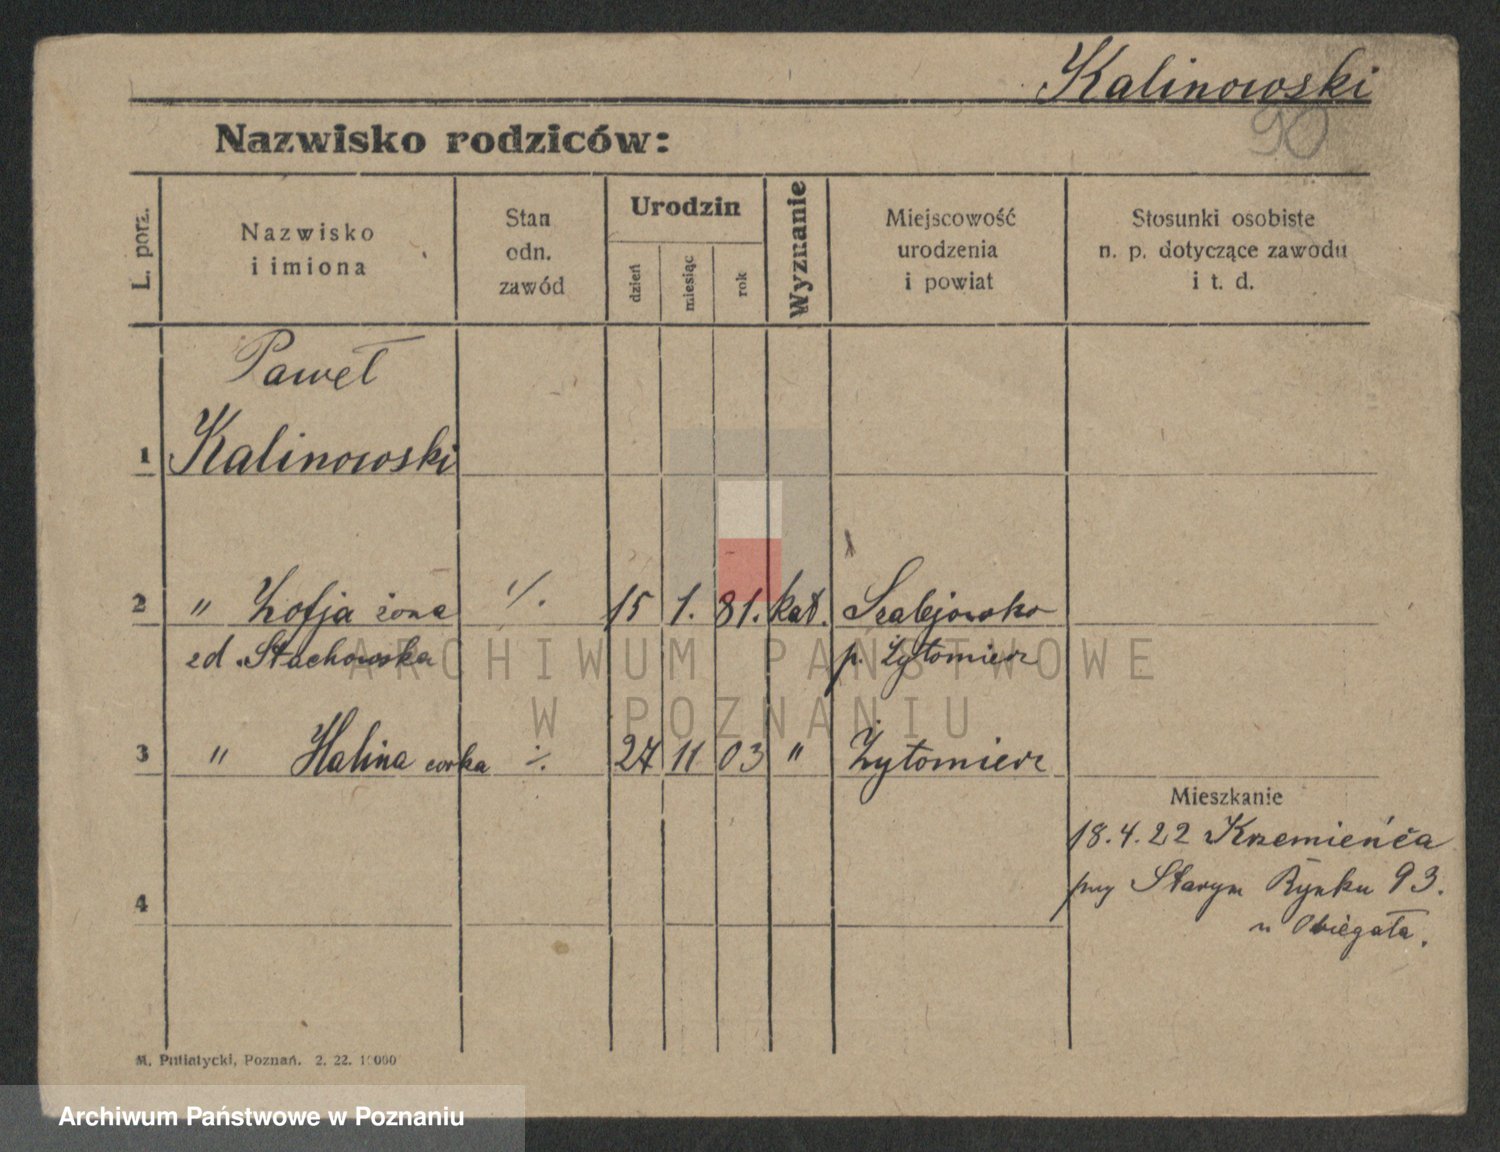 Kalinowski
90
Nazwisko rodziców:
L. porz.
Nazwisko
i imiona
Stan
odn.
zawód
Urodzin
dzień
miesiąc
rok
Wyznanie
Miejscowość
urodzenia
i powiat
Stosunki osobiste
n. p. dotyczące zawodu
i t. d.
Paweł
1 Kalinowski
2 " Zofja żona ·/. 15 1. 81. kat. Szalejowsko
zd. Stachowska p. Żytomierz
3 " Halina corka ·/. 27 11 03 " Żytomierz
Mieszkanie
18.4.22 Krzemieńca
przy Starym Rynku 93.
4
u Obiegała.
M. Putiatycki, Poznań. 2. 22. 10000
ARCHIWUM PAŃSTWOWE
W POZNANIU
Archiwum Państwowe w Poznaniu